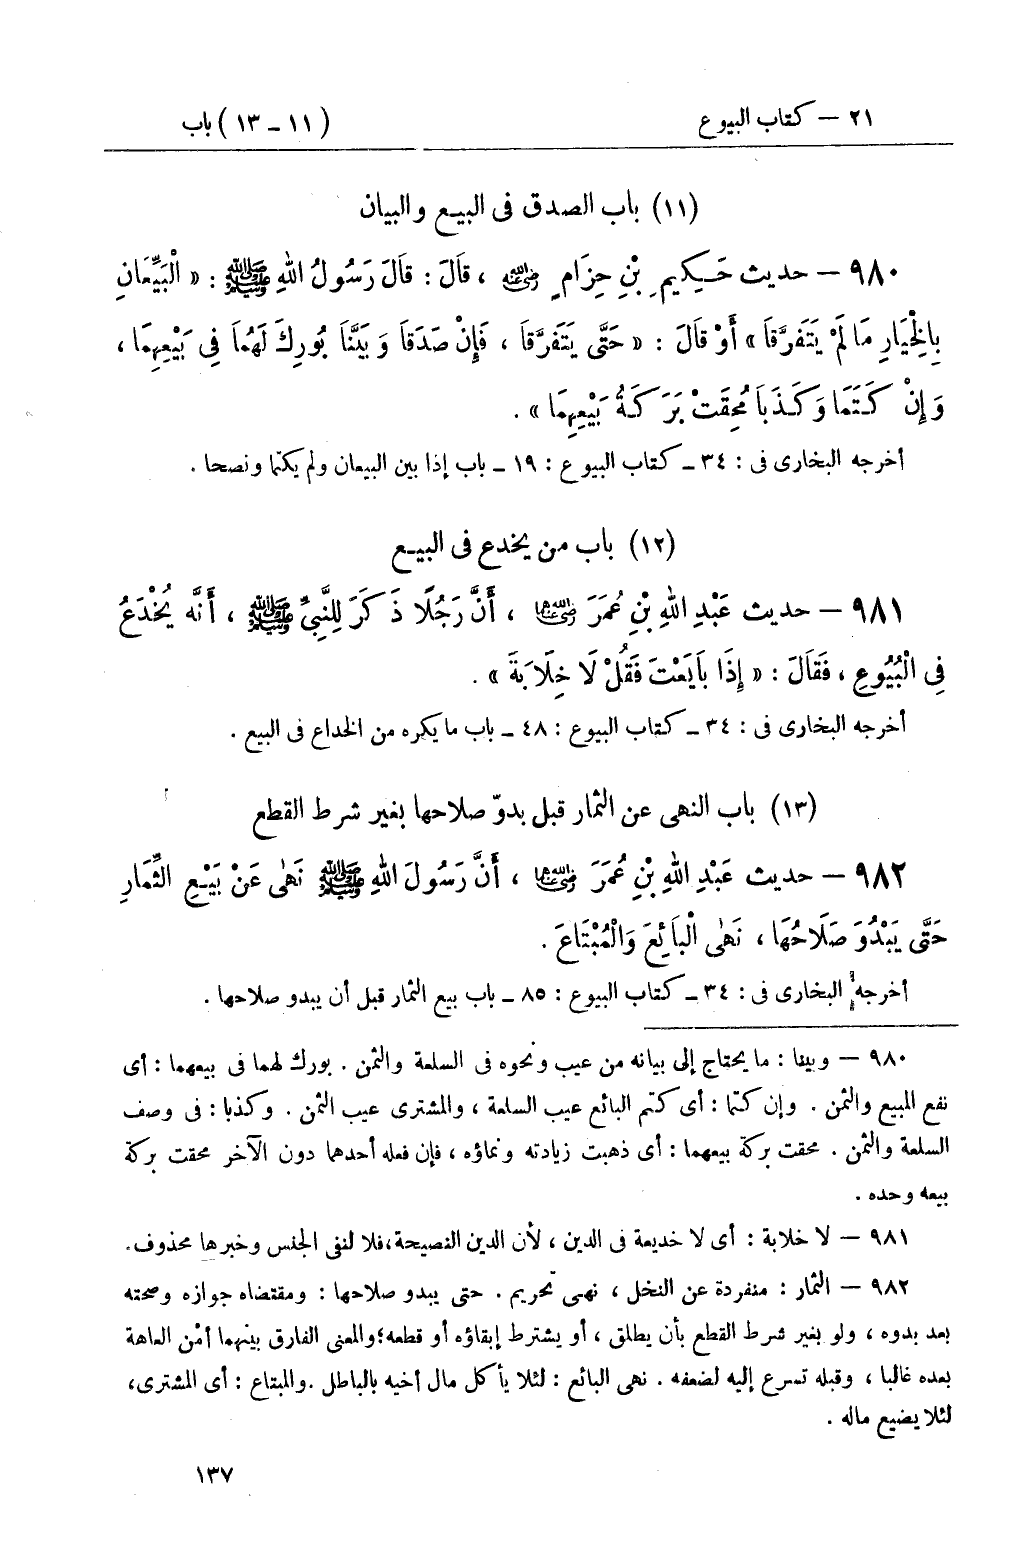 ٢١ – كتاب البيوع
(١١ – ١٣) باب
(١١) باب الصدق فى البيع والبيان
٩٨٠ – حديث حَكِيمِ بْنِ حِزَامٍ رضي الله عنه ، قَالَ : قَالَ رَسُولُ اللهِ ﷺ : « الْبَيِّعَانِ
بِالْخِيَارِ مَا لَمْ يَتَفَرَّقَا » أَوْ قَالَ : « حَتَّى يَتَفَرَّقَا ، فَإِنْ صَدَقَا وَبَيَّنَا بُورِكَ لَهُمَا فِى بَيْعِهِمَا ،
وَإِنْ كَتَمَا وَكَذَبَا مُحِقَتْ بَرَكَةُ بَيْعِهِمَا » .
أخرجه البخارى فى : ٣٤ – كتاب البيوع : ١٩ – باب إذا بين البيعان ولم يكتما ونصحا .
(١٢) باب من يخدع فى البيع
٩٨١ – حديث عَبْدِ اللهِ بْنِ عُمَرَ رضي الله عنهما ، أَنَّ رَجُلًا ذَكَرَ لِلنَّبِىِّ ﷺ ، أَنَّه يُخْدَعُ
فِى الْبُيُوعِ ، فَقَالَ : « إِذَا بَايَعْتَ فَقُلْ لَا خِلَابَةَ » .
أخرجه البخارى فى : ٣٤ – كتاب البيوع : ٤٨ – باب ما يكره من الخداع فى البيع .
(١٣) باب النهى عن الثمار قبل بدوّ صلاحها بغير شرط القطع
٩٨٢ – حديث عَبْدِ اللهِ بْنِ عُمَرَ رضي الله عنهما ، أَنَّ رَسُولَ اللهِ ﷺ نَهَى عَنْ بَيْعِ الثِّمَارِ
حَتَّى يَبْدُوَ صَلَاحُهَا ، نَهَى الْبَائِعَ وَالْمُبْتَاعَ .
أخرجه البخارى فى : ٣٤ – كتاب البيوع : ٨٥ – باب بيع الثمار قبل أن يبدو صلاحها .
٩٨٠ – وبينا : ما يحتاج إلى بيانه من عيب ونحوه فى السلعة والثمن . بورك لهما فى بيعهما : أى
نفع المبيع والثمن . وإن كتما : أى كتم البائع عيب السلعة ، والمشترى عيب الثمن . وكذبا : فى وصف
السلعة والثمن . محقت بركة بيعهما : أى ذهبت زيادته ونماؤه ، فإن فعله أحدهما دون الآخر محقت بركة
بيعه وحده .
٩٨١ – لا خلابة : أى لا خديعة فى الدين ، لأن الدين النصيحة،فلا لنفى الجنس وخبرها محذوف.
٩٨٢ – الثمار : منفردة عن النخل ، نهى تحريم . حتى يبدو صلاحها : ومقتضاه جوازه وصحته
بعد بدوه ، ولو بغير شرط القطع بأن يطلق ، أو يشترط إبقاؤه أو قطعه؛والمعنى الفارق بينهما أمْن العاهة
بعده غالبا ، وقبله تسرع إليه لضعفه . نهى البائع : لئلا يأكل مال أخيه بالباطل .والمبتاع : أى المشترى،
لئلا يضيع ماله .
١٣٧